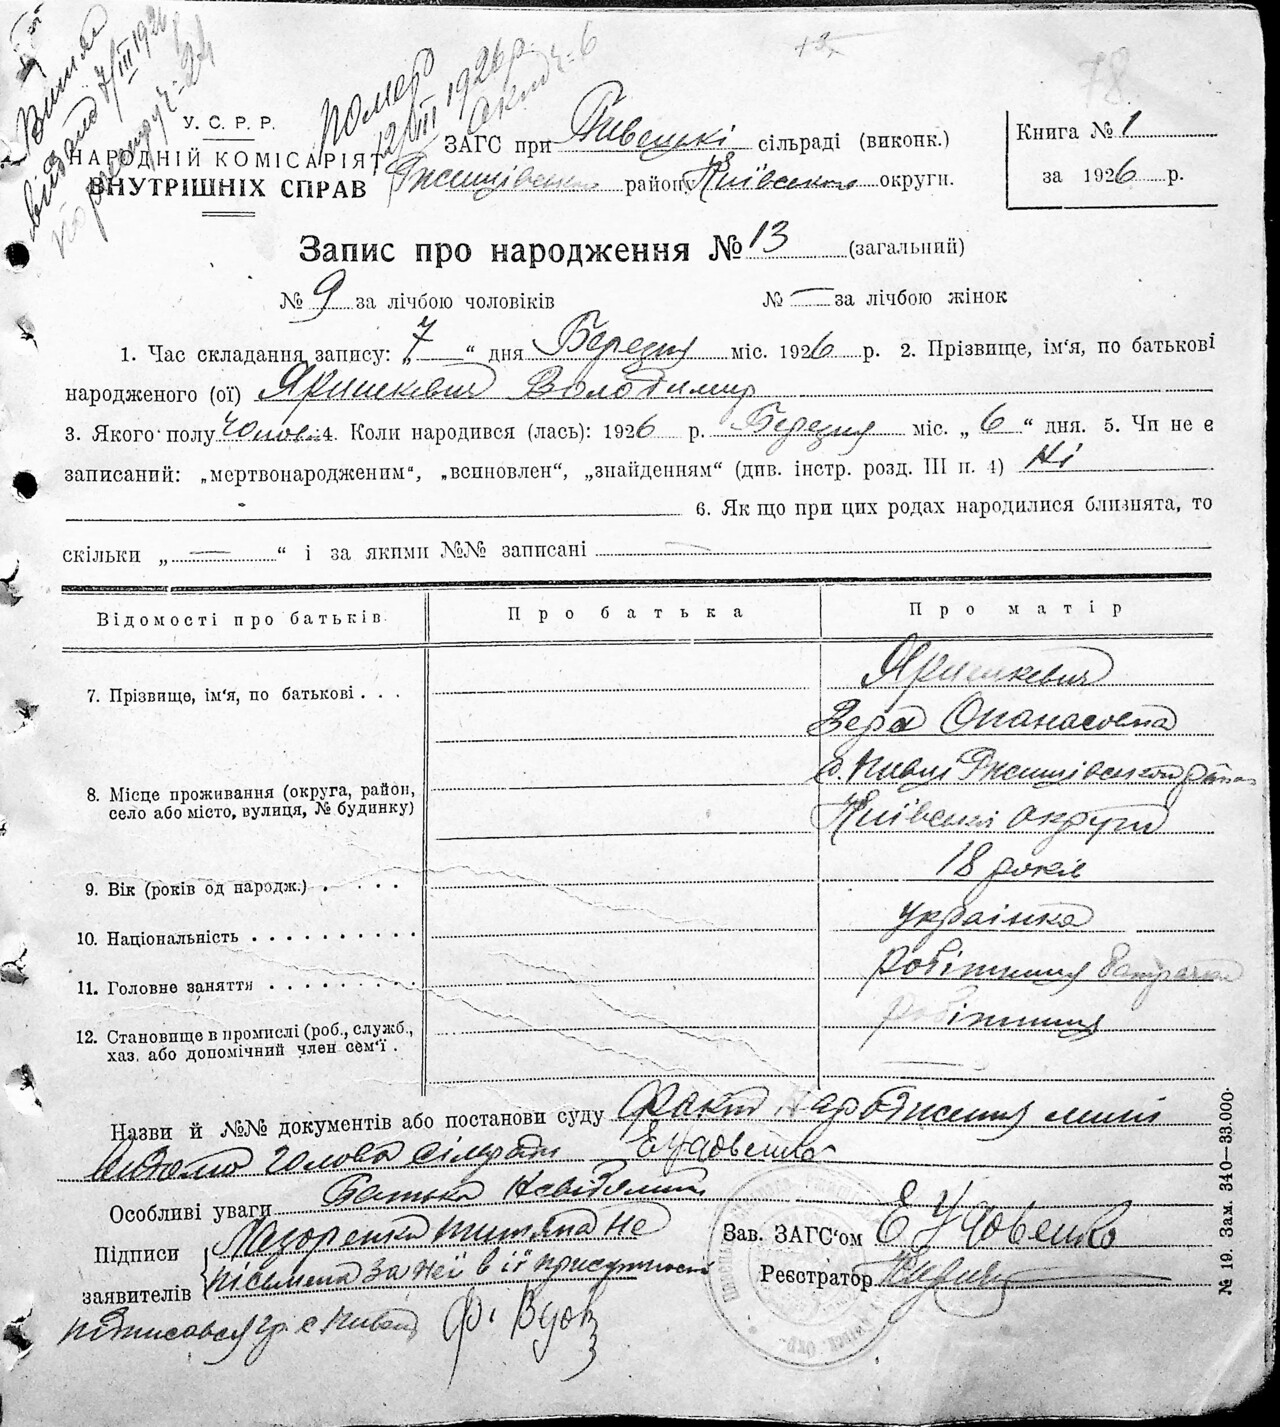 78
Випись
видана 7/III 1926
по реєстру ч. 24
помер
12/III 1926 р.
акт ч. 6
У. С. Р. Р.
НАРОДНІЙ КОМІСАРІЯТ
ВНУТРІШНІХ СПРАВ
ЗАГС при Пивецькі сільраді (виконк.)
Ржищівського району Київської округи.
Книга № 1
за 1926 р.
Запис про народження № 13 (загальний)
№ 9 за лічбою чоловіків № — за лічбою жінок
1. Час складання запису: „ 7 “ дня Березня міс. 1926 р. 2. Прізвище, ім‘я, по батькові
народженого (ої) Яришкевич Володимир
3. Якого полу чолов. 4. Коли народився (лась): 1926 р. Березня міс. „ 6 “ дня. 5. Чи не є
записаний: „мертвонародженим“, „всиновлен“, „знайденням“ (див. інстр. розд. III п. 4) Ні
6. Як що при цих родах народилися близнята, то
скільки „ — “ і за якими №№ записані —
Відомості про батьків
Про батька
Про матір
7. Прізвище, ім‘я, по батькові . . .
Яришкевич
Вера Опанасовна
8. Місце проживання (округа, район,
село або місто, вулиця, № будинку)
с. Пивці Ржищівського району
Київської округи
9. Вік (років од народж.) . . . .
18 років
10. Національність . . . . . . . . . .
українка
11. Головне заняття . . . . . . . . .
робітниця батрачка
12. Становище в промислі (роб., служб.,
хаз. або допомічний член сем‘ї .
робітниця
—
Назви й №№ документів або постанови суду Факт народження мині
відомо Голова сільради Е Удовенко
Особливі уваги Батько невідомий
Підписи
заявителів
Назоренко Титяна не
письмена за неї в її присутності
підписався гр. с. Пивец Ф. Вдов
Зав. ЗАГС‘ом Е Удовенко
Реєстратор
№ 19. Зам. 340—33.000.